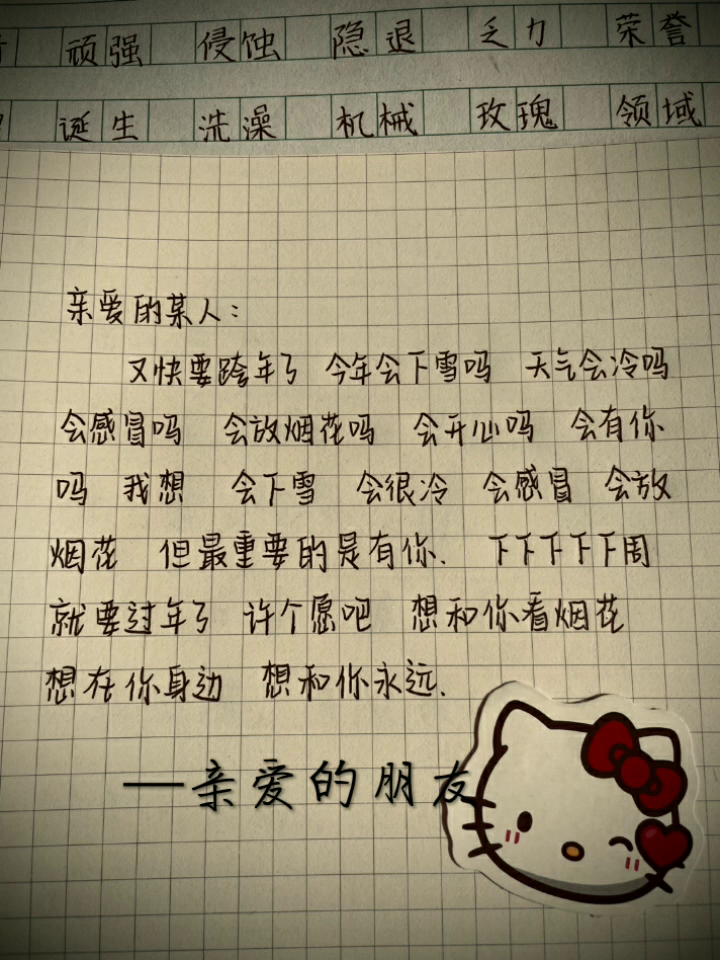 顽强 侵蚀 隐退 乏力 荣誉
诞生 洗澡 机械 玫瑰 领域
亲爱的某人：
又快要跨年了 今年会下雪吗 天气会冷吗
会感冒吗 会放烟花吗 会开心吗 会有你
吗 我想 会下雪 会很冷 会感冒 会放
烟花 但最重要的是有你. 下下下下下周
就要过年了 许个愿吧 想和你看烟花
想在你身边 想和你永远.
—亲爱的朋友